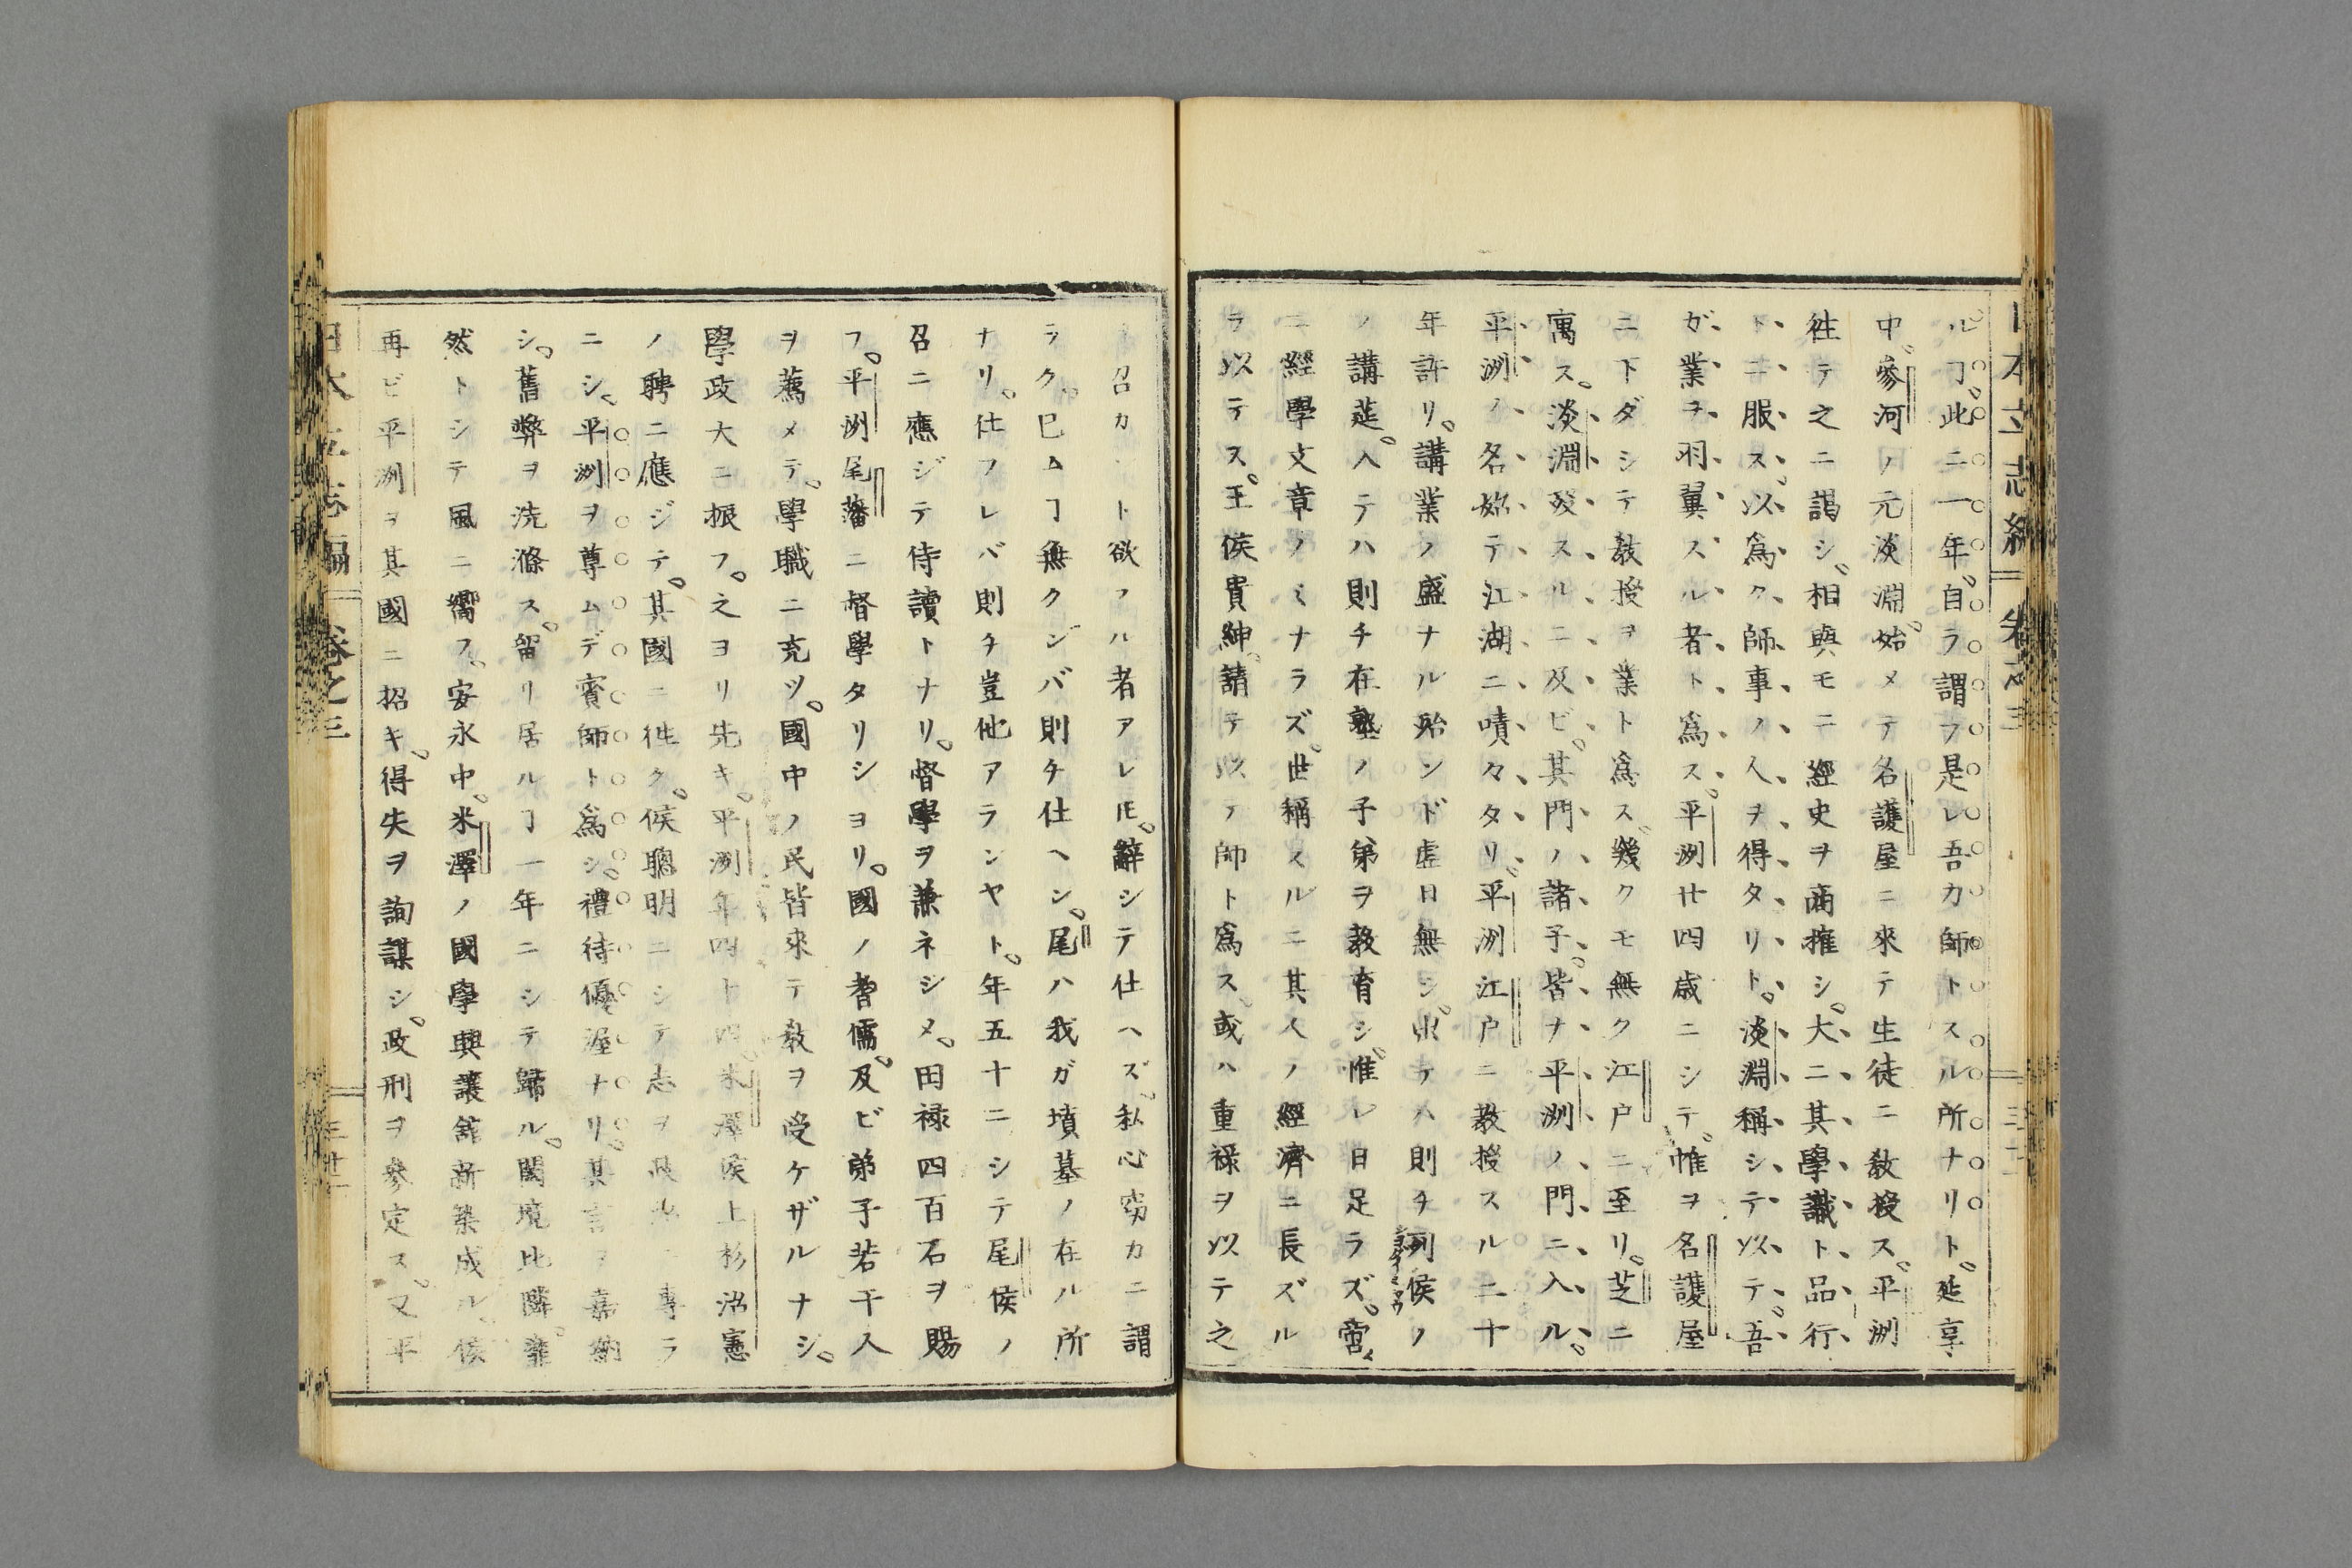 日本立志編 卷之三
ルヿ、此ニ一年、自ラ謂フ是レ吾カ師トスル所ナリト。延享
中、參河ノ元淡淵、始メテ名護屋ニ來テ生徒ニ敎授ス。平洲
往テ之ニ謁シ、相與モニ經史ヲ商搉シ、大ニ其學識ト品行
トニ服ス、以爲ク師事ノ人ヲ得タリト。淡淵稱シテ以テ、吾
ガ業ヲ羽翼スル者ト爲ス。平洲廿四歳ニシテ、帷ヲ名護屋
ニ下ダシテ敎授ヲ業ト爲ス、幾クモ無ク江戸ニ至リ、芝ニ
寓ス。淡淵歿スルニ及ビ、其門ノ諸子、皆ナ平洲ノ門ニ入ル。
平洲ノ名始テ江湖ニ嘖々タリ。平洲江戸ニ敎授スル二十
年許リ。講業ノ盛ナル殆ンド虚日無シ。出テハ則チ列侯ノ
ノ講莚。入テハ則チ在塾ノ子弟ヲ敎育シ、惟レ日足ラズ。啻
ニ經學文章ノミナラズ。世稱スルニ其人ノ經濟ニ長ズル
ヲ以テス。王侯貴紳、請テ以テ師ト爲ス。或ハ重禄ヲ以テ之
召カント欲フル者アレ𪜈。辭シテ仕ヘズ、私心窃カニ謂
ラク。巳ムヿ無クンバ則チ仕ヘン。尾ハ我ガ墳墓ノ在ル所
ナリ。仕フレバ則チ豈他アランヤト。年五十ニシテ尾侯ノ
召ニ應ジテ侍讀トナリ。督學ヲ兼ネシメ。田禄四百石ヲ賜
フ。平洲尾藩ニ督學タリシヨリ。國ノ耆儒、及ビ弟子若干人
ヲ薦メテ。學職ニ充ツ。國中ノ民皆來テ敎ヲ受ケザルナシ。
學政大ニ振フ。之ヨリ先キ。平洲年四十四米澤侯上杉治憲
ノ聘ニ應ジテ。其國ニ徃ク。侯聰明ニシテ志ヲ政治ニ專ラ
ニシ。平洲ヲ尊ムデ賓師ト爲シ。禮待優渥ナリ。其言ヲ嘉納
シ。舊弊ヲ洗滌ス。留リ居ルヿ一年ニシテ歸ル。闔境比隣。靡
然トシテ風ニ嚮フ。安永中。米澤ノ國學興讓舘新築成ル。侯
再ビ平洲ヲ其國ニ招キ。得失ヲ詢謀シ。政刑ヲ參定ス。又平
日本立志編 卷之三